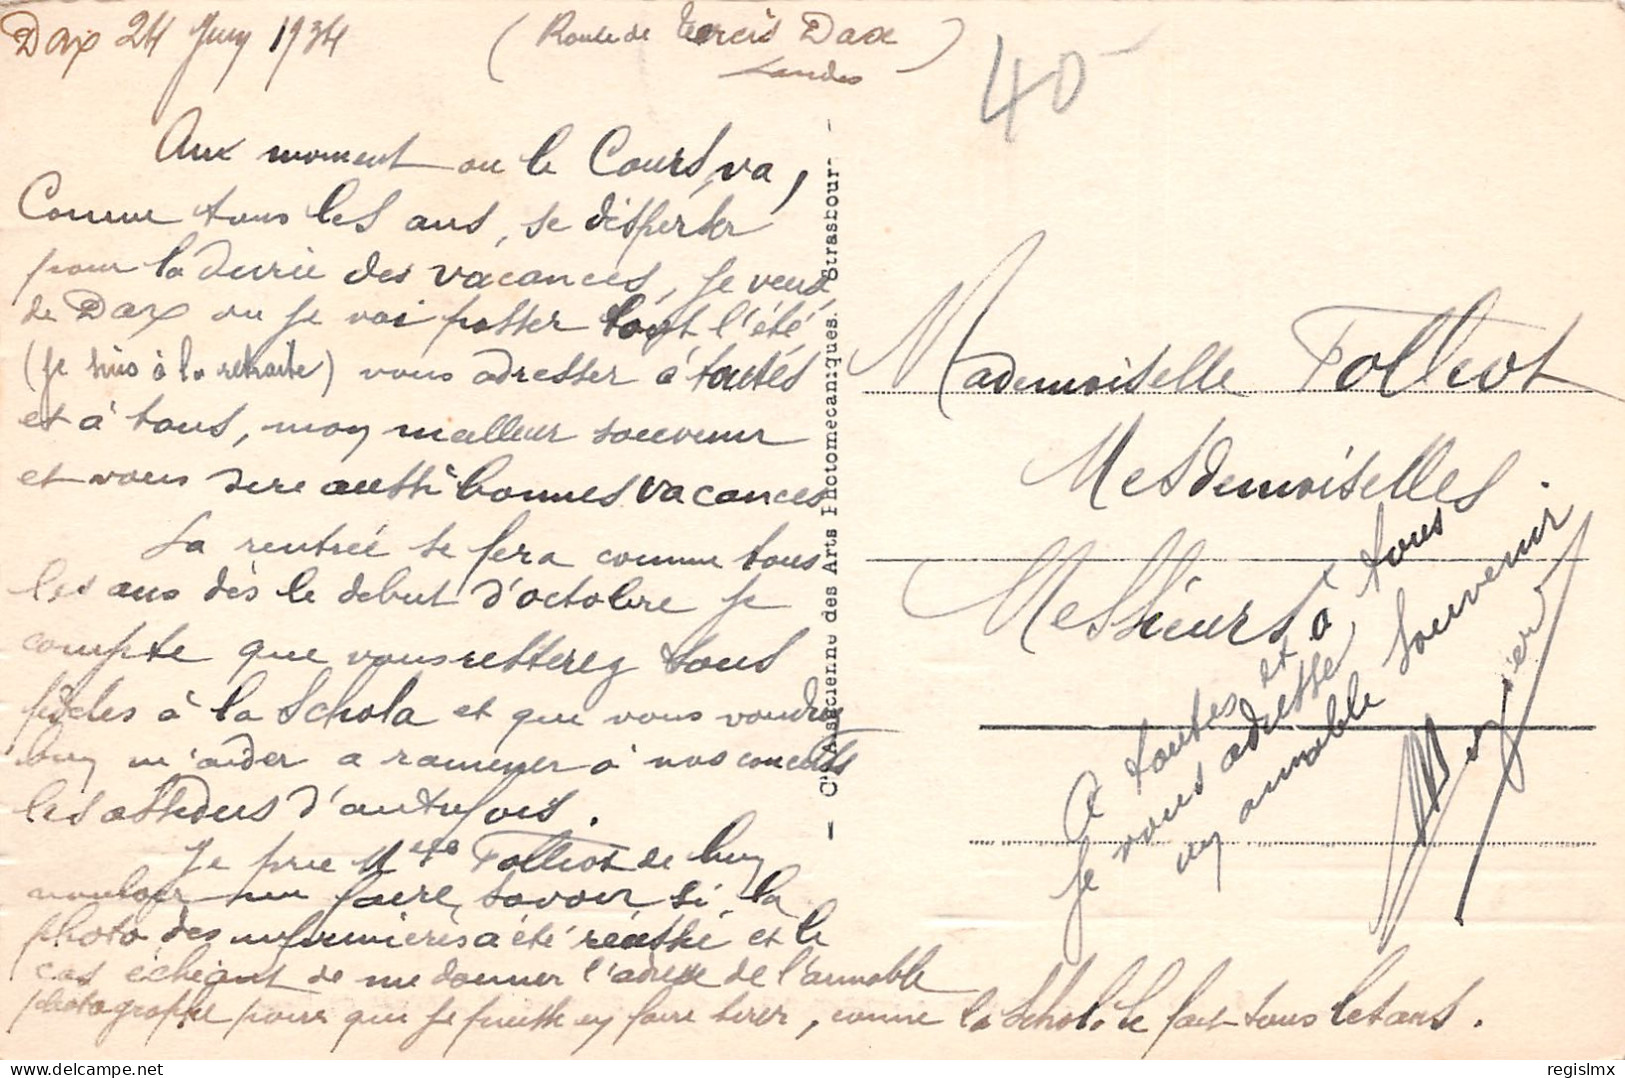 Dax 24 Juin 1934 ( Route de Tercis Dax )
Landes
40
Aux moment ou le Cours va,
Comme tous les ans, se disperser
pour la durée des vacances, je veux
de Dax ou je vai passer tout l'été
(je suis à la retraite) vous adresser à toutes
et à tous, mon meilleur souvenir
et vous dire aussi bonnes vacances
La rentrée se fera comme tous
les ans dès le debut d'octobre je
compte que vous resterez tous
fidèles à la Schola et que vous voudrez
bien m'aider a ramener à nos concerts
les assidus d'autrefois.
Je prie Melle Folliot de bien
vouloir me faire savoir si la
photo des infirmières a été réussie et le
cas échéant de me donner l'adresse de l'aimable
photographe pour que je puisse en faire tirer, comme la Schola le fait tous les ans.
Cie Alsacienne des Arts Photomecaniques, Strasbour
Mademoiselle Folliot
Mesdemoiselles
Messieurs
A toutes et à tous
je vous adresse,
un aimable souvenir.
regislmx